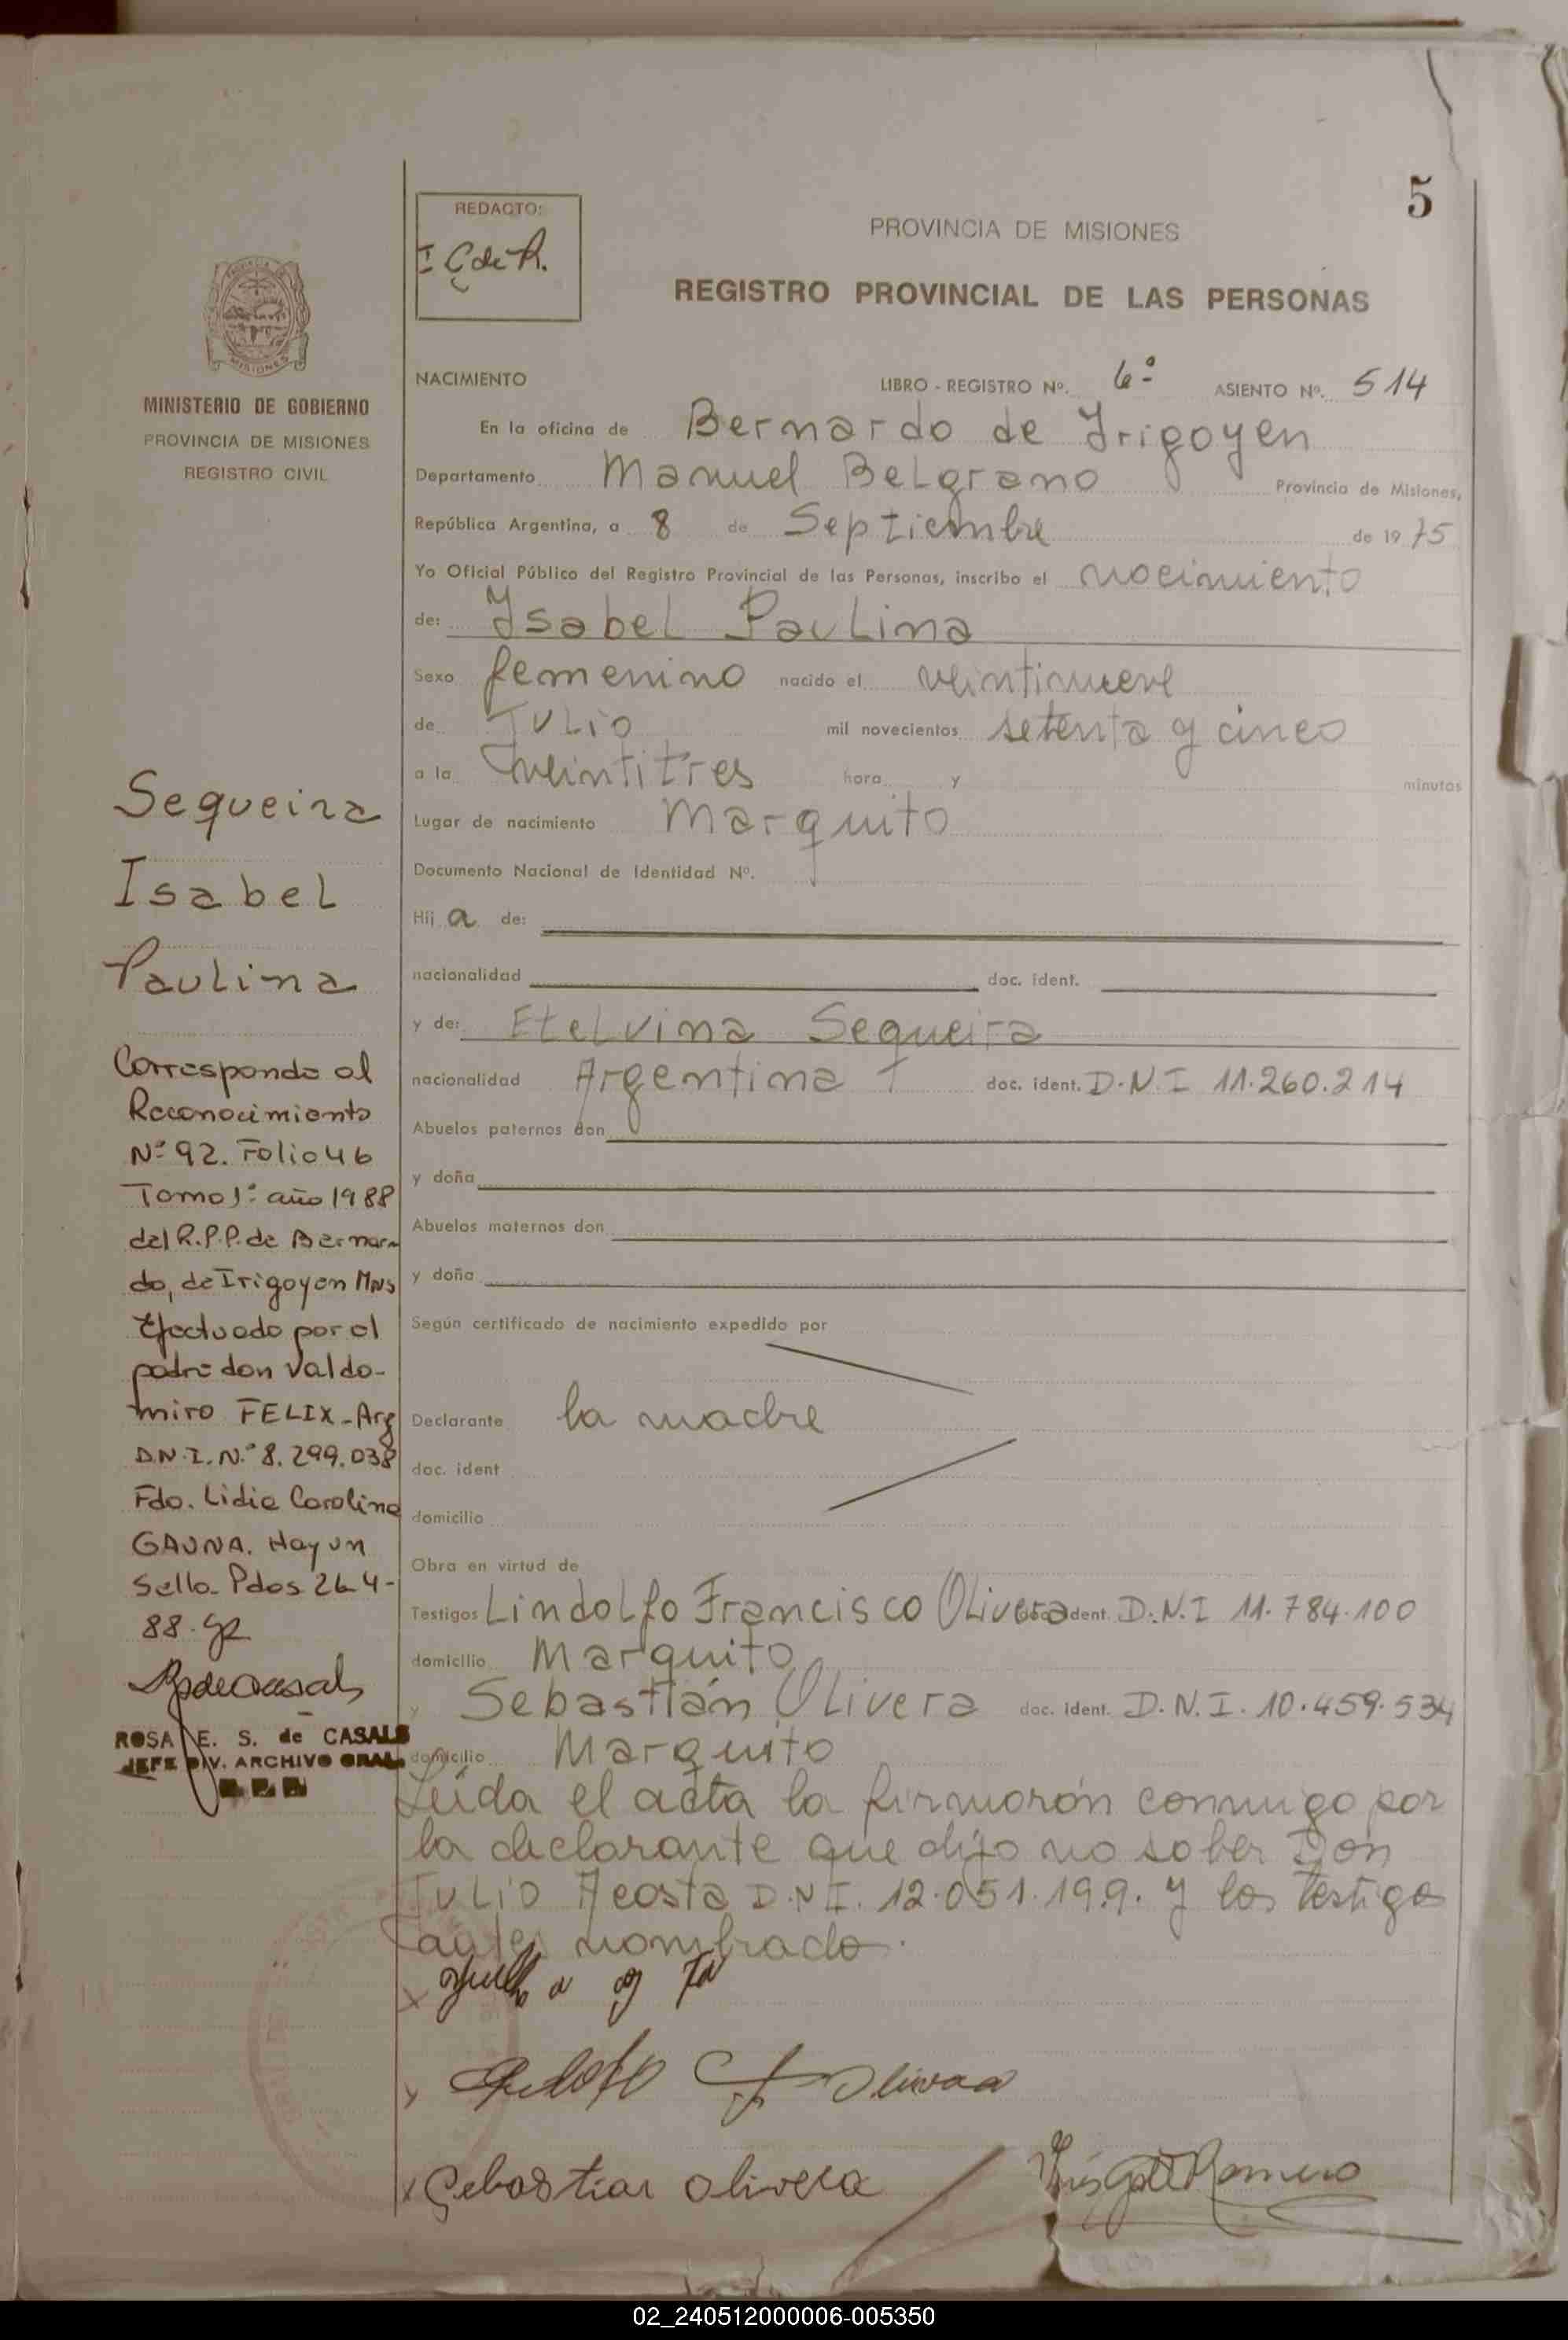 5
REDACTO:
I G de R.
PROVINCIA DE MISIONES
REGISTRO PROVINCIAL DE LAS PERSONAS
PROVINCIA DE MISIONES
MINISTERIO DE GOBIERNO
PROVINCIA DE MISIONES
REGISTRO CIVIL
NACIMIENTO LIBRO - REGISTRO Nº. 6º ASIENTO Nº. 514
En la oficina de Bernardo de Irigoyen
Departamento Manuel Belgrano Provincia de Misiones,
República Argentina, a 8 de Septiembre de 1975
Yo Oficial Público del Registro Provincial de las Personas, inscribo el nacimiento
de: Isabel Paulina
Sexo femenino nacido el veintinueve
de Julio mil novecientos setenta y cinco
a la veintitres hora y minutos
Lugar de nacimiento Marquito
Documento Nacional de Identidad Nº.
Hij a de:
nacionalidad doc. ident.
y de: Etelvina Sequeira
nacionalidad Argentina doc. ident. D.N.I 11.260.214
Abuelos paternos don
y doña
Abuelos maternos don
y doña
Según certificado de nacimiento expedido por
Declarante la madre
doc. ident
domicilio
Obra en virtud de
Testigos Lindolfo Francisco Olivera ident. D.N.I 11.784.100
domicilio Marquito
y Sebastián Olivera doc. ident. D.N.I. 10.459.534
domicilio Marquito
Leída el acta la firmarón conmigo por
la declarante que dijo no saber Don
Julio Acosta D.N.I. 12.051.199. y los testigos
antes nombrado.
Sebastian Olivera
Sequeira
Isabel
Paulina
Corresponde al
Reconocimiento
Nº 92. Folio 46
Tomo 1º año 1988
del R.P.P. de Bernar-
do, de Irigoyen Mns
Efectuado por el
padre don Valdo-
miro FELIX - Arg
D.N.I. Nº 8.299.038
Fdo. Lidia Carolina
GAUNA. Hay un
Sello. Pdos 26-4-
88.
ROSA E. S. de CASALS
JEFE DIV. ARCHIVO GRAL.
02_240512000006-005350